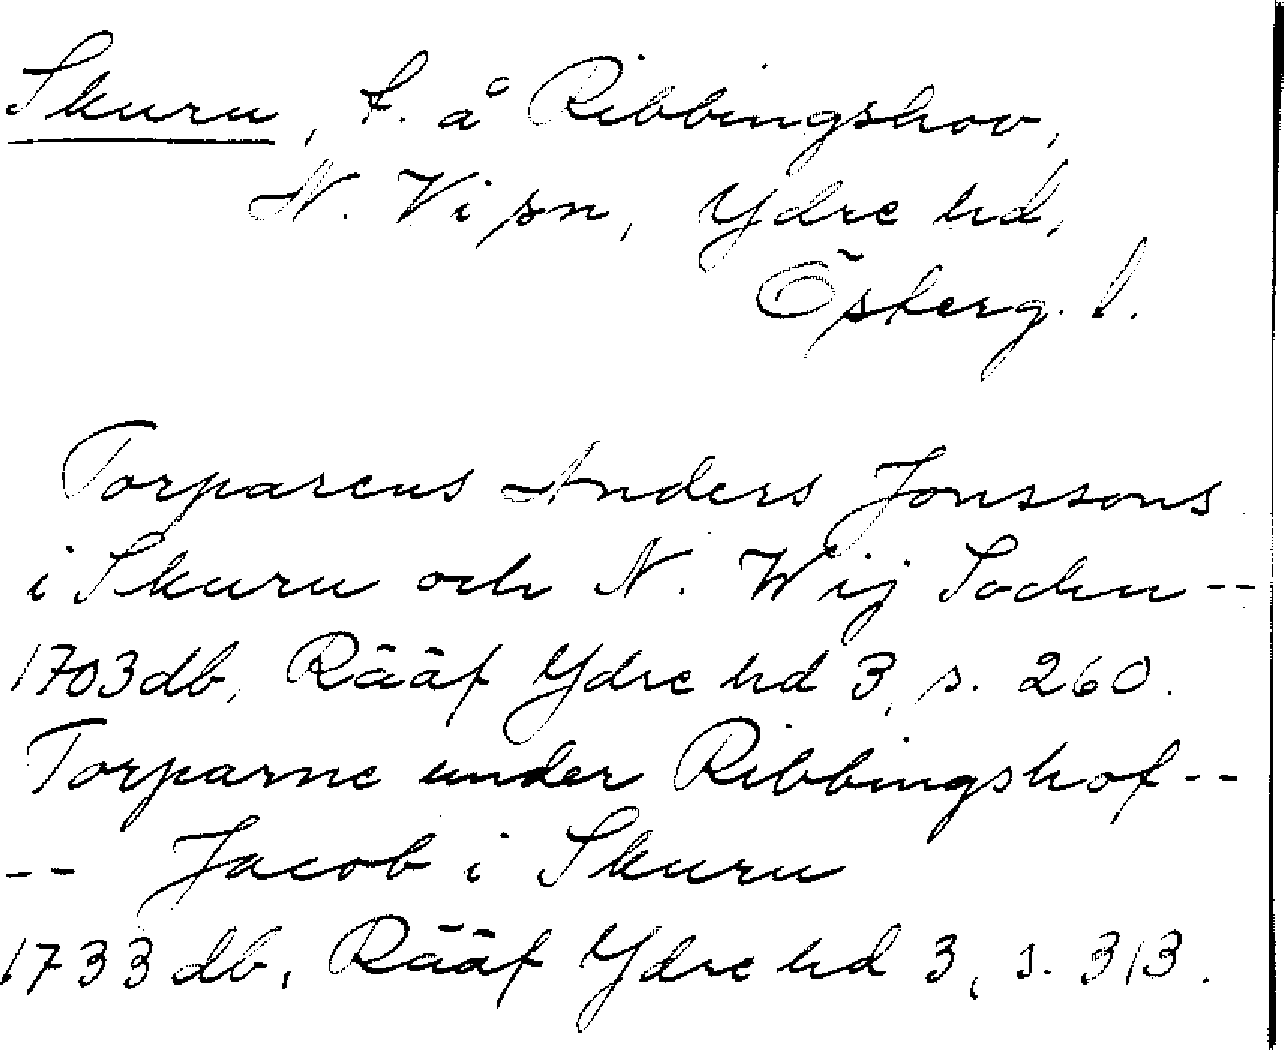 Skuru, t. å Ribbingshov,
N. Vi sn, Ydre hd,
Österg. l.
Torparens Anders Jonssons
i Skuru och N. Wij Sochn --
1703 db, Rääf Ydre hd 3, s. 260.
Torparne under Ribbingshof --
-- Jacob i Skuru
1733 db, Rääf Ydre hd 3, s. 313.